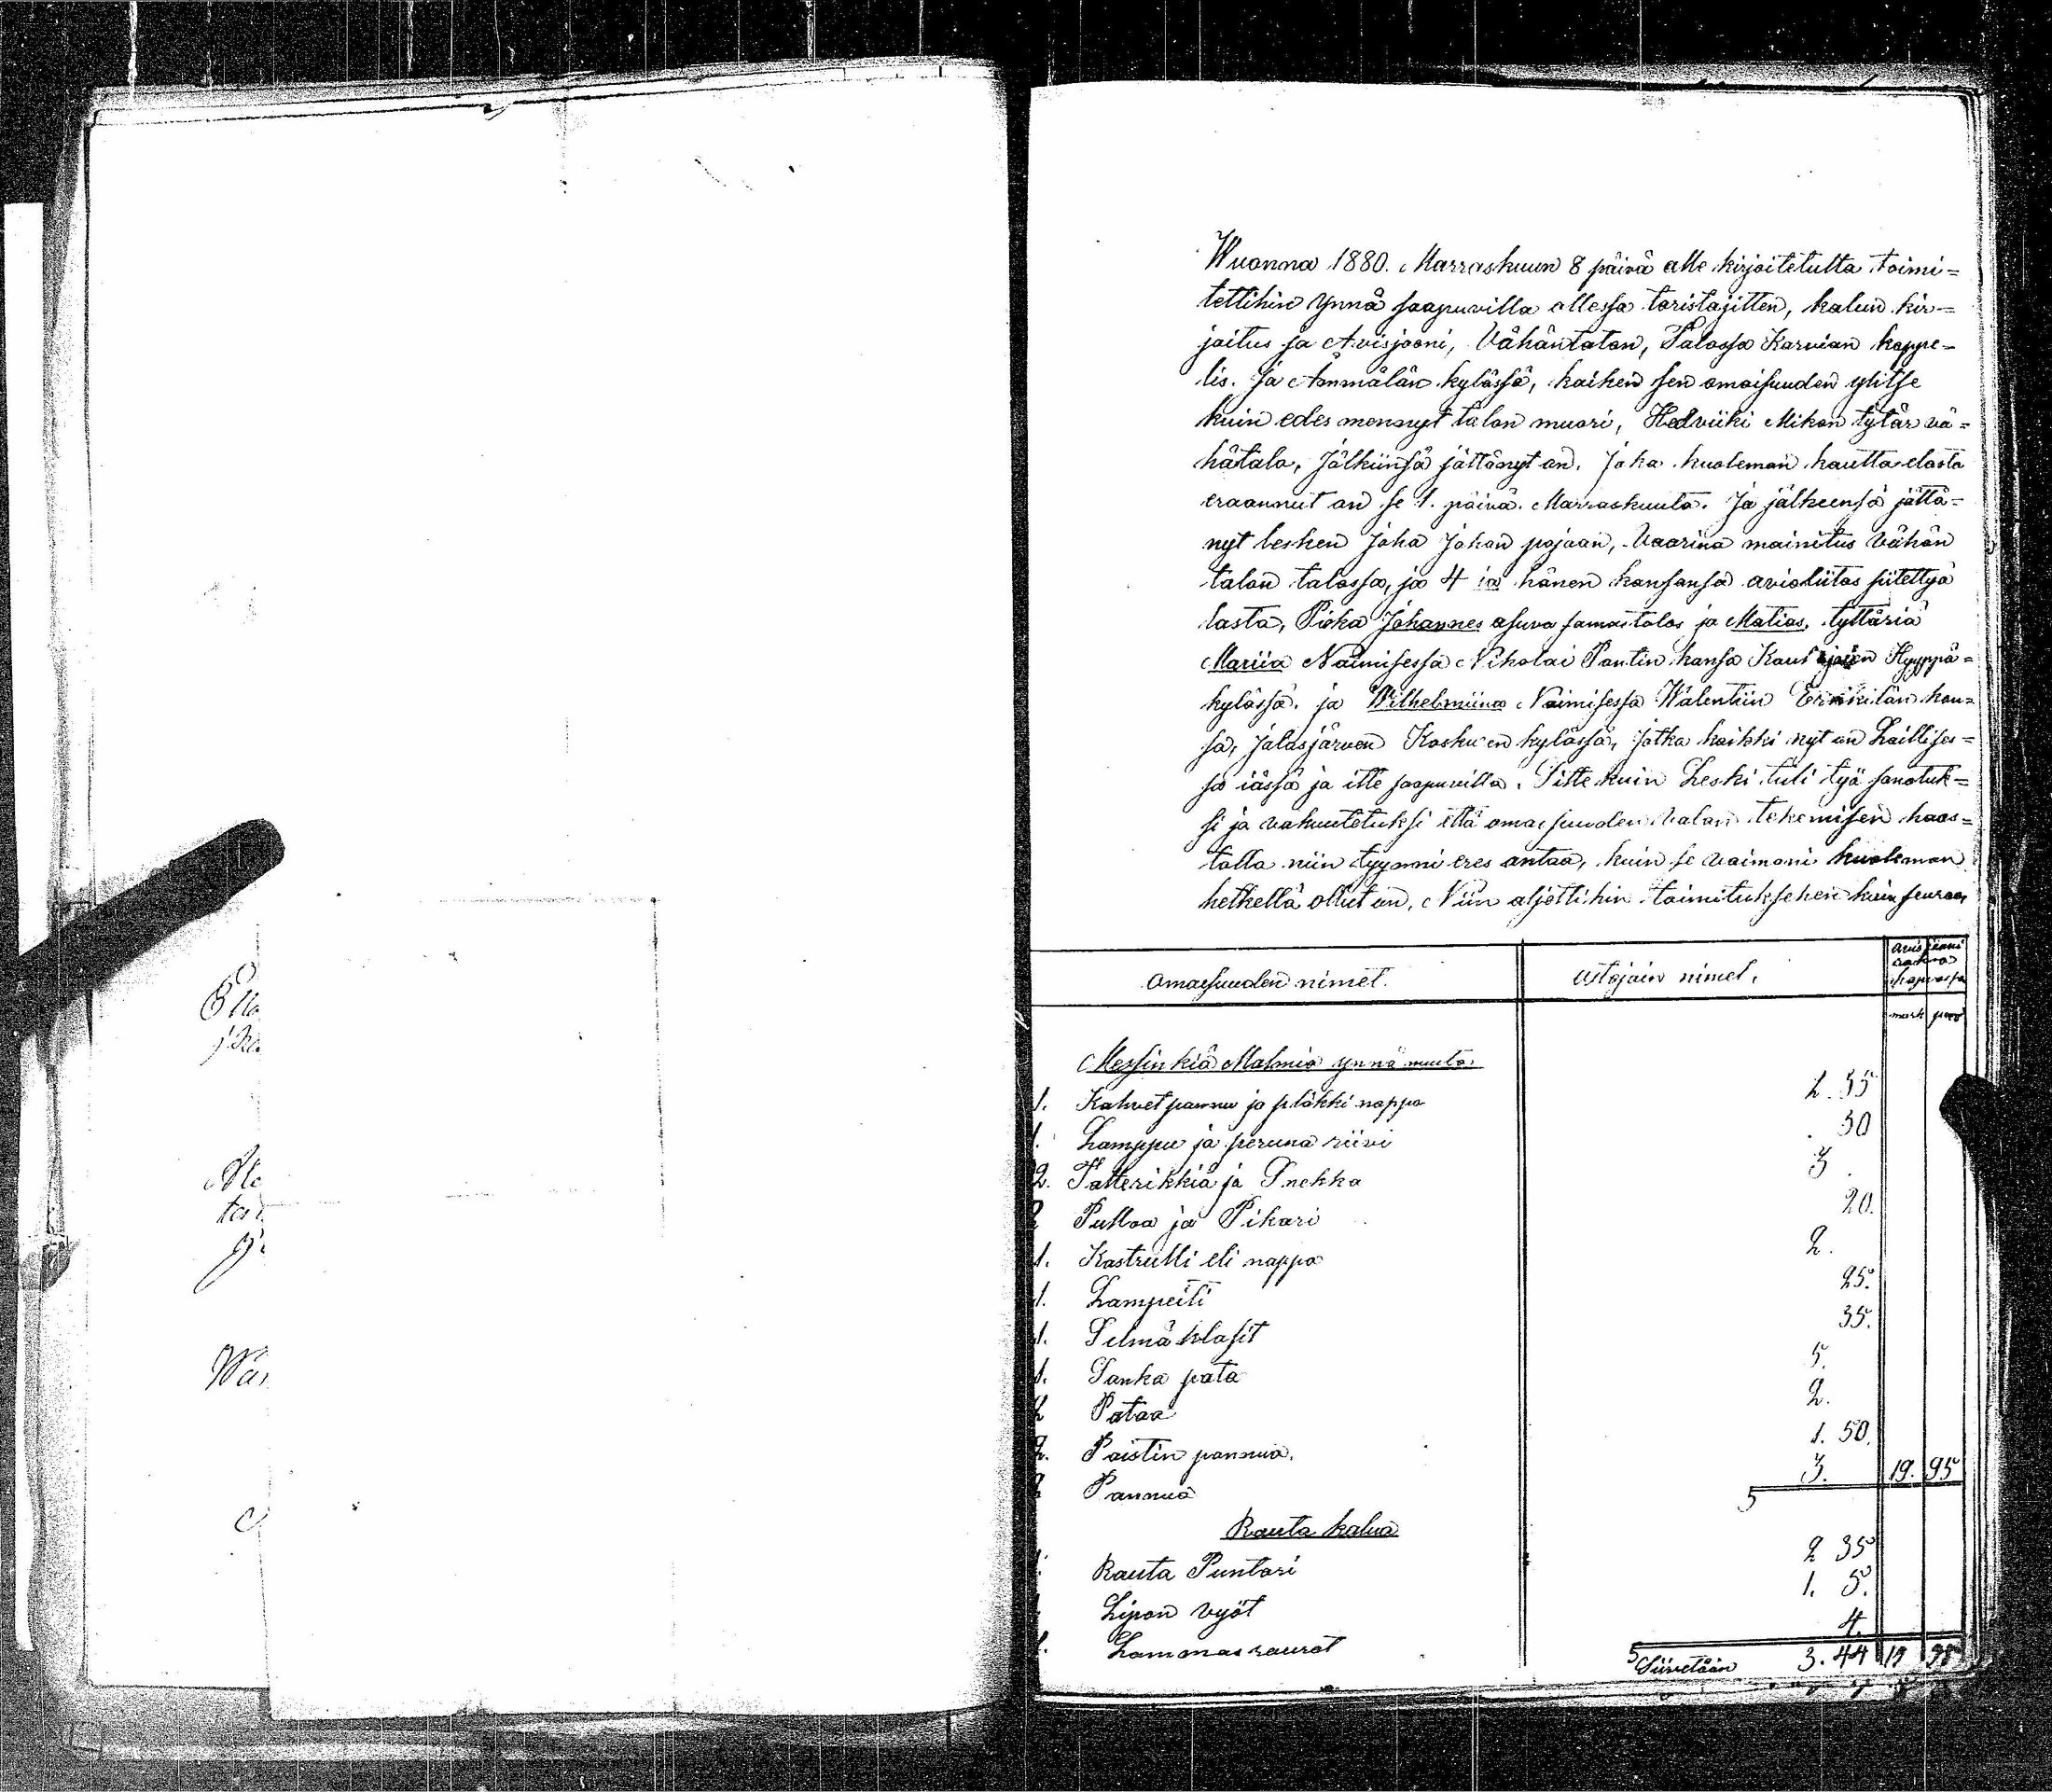 Ella
Wuonna 1880. Marraskuun 8 päivä alle kirjoitetulta toimi=
tettihin ynnä saapuvilla ollessa toristajitten, kalun kir=
joitus ja Avisjooni, Vähäntalon, Talossa Karvian kappe=
lis. ja Ämmälän kylässä, kaiken sen omaisuuden ylitse
kuin edes mennyt talon muori, Hedviiki Mikon tytär vä=
hätalo, Jälkiinsä jättänyt on. Joka kuoleman kautta elosta
eraannut on se 1. päivä. Marraskuuta. Ja jälkeensä jättä=
nyt lesken Joha Johan pojaan, Vaarina mainitus Vähän
talon talossa, ja 4 ja hänen kansansa avioliitos siitettyä
lasta, Poika Johannes asuva samas talos ja Matias, tyttäriä
Mariia Naimisessa Nikolai Pantin kansa Kauhajoen Hyyppä=
kylässä. ja Wilhelmiina Naimisessa Walentiin Erkkilän kan=
sa, Jalasjärven Koskuen kylässä, Jotka kaikki nyt on Laillises=
sa iässä ja itte saapuvilla. Sitte kuin Leski tuli työ sanotuk=
si ja vakuutetuksi että omaisuuden valan tekemisen haas=
tolla niin tyynni eres antaa, kuin se vaimoni kuoleman
hetkellä ollut on, Niin aljettihin toimituksehen kuin seuraa,
Omaisuuden nimet.
Ostajain nimet.
mark
Messinkiä Malmia ynnä muuta
1. Kahvet pannu ja pläkki nappo 2. 55
1. Lamppu ja peruna riivi . 30
2. Patterikkiä ja Snekka 3 .
2 Pulloa ja Pikari 20.
1. Kastrulli eli nappo 2.
1. Lampeiti 25.
1. Silmä klasit 35.
1. Sanka pata 5.
2 Pataa 2.
2. Paistin pannua. 1. 50.
2 Pannua 3. 19. 95
Rauta kalua
Rauta Puntari 2 35
Lipon vyöt 1. 5.
1. Lammas raurat 4.
Siiretään 3. 44 19 95